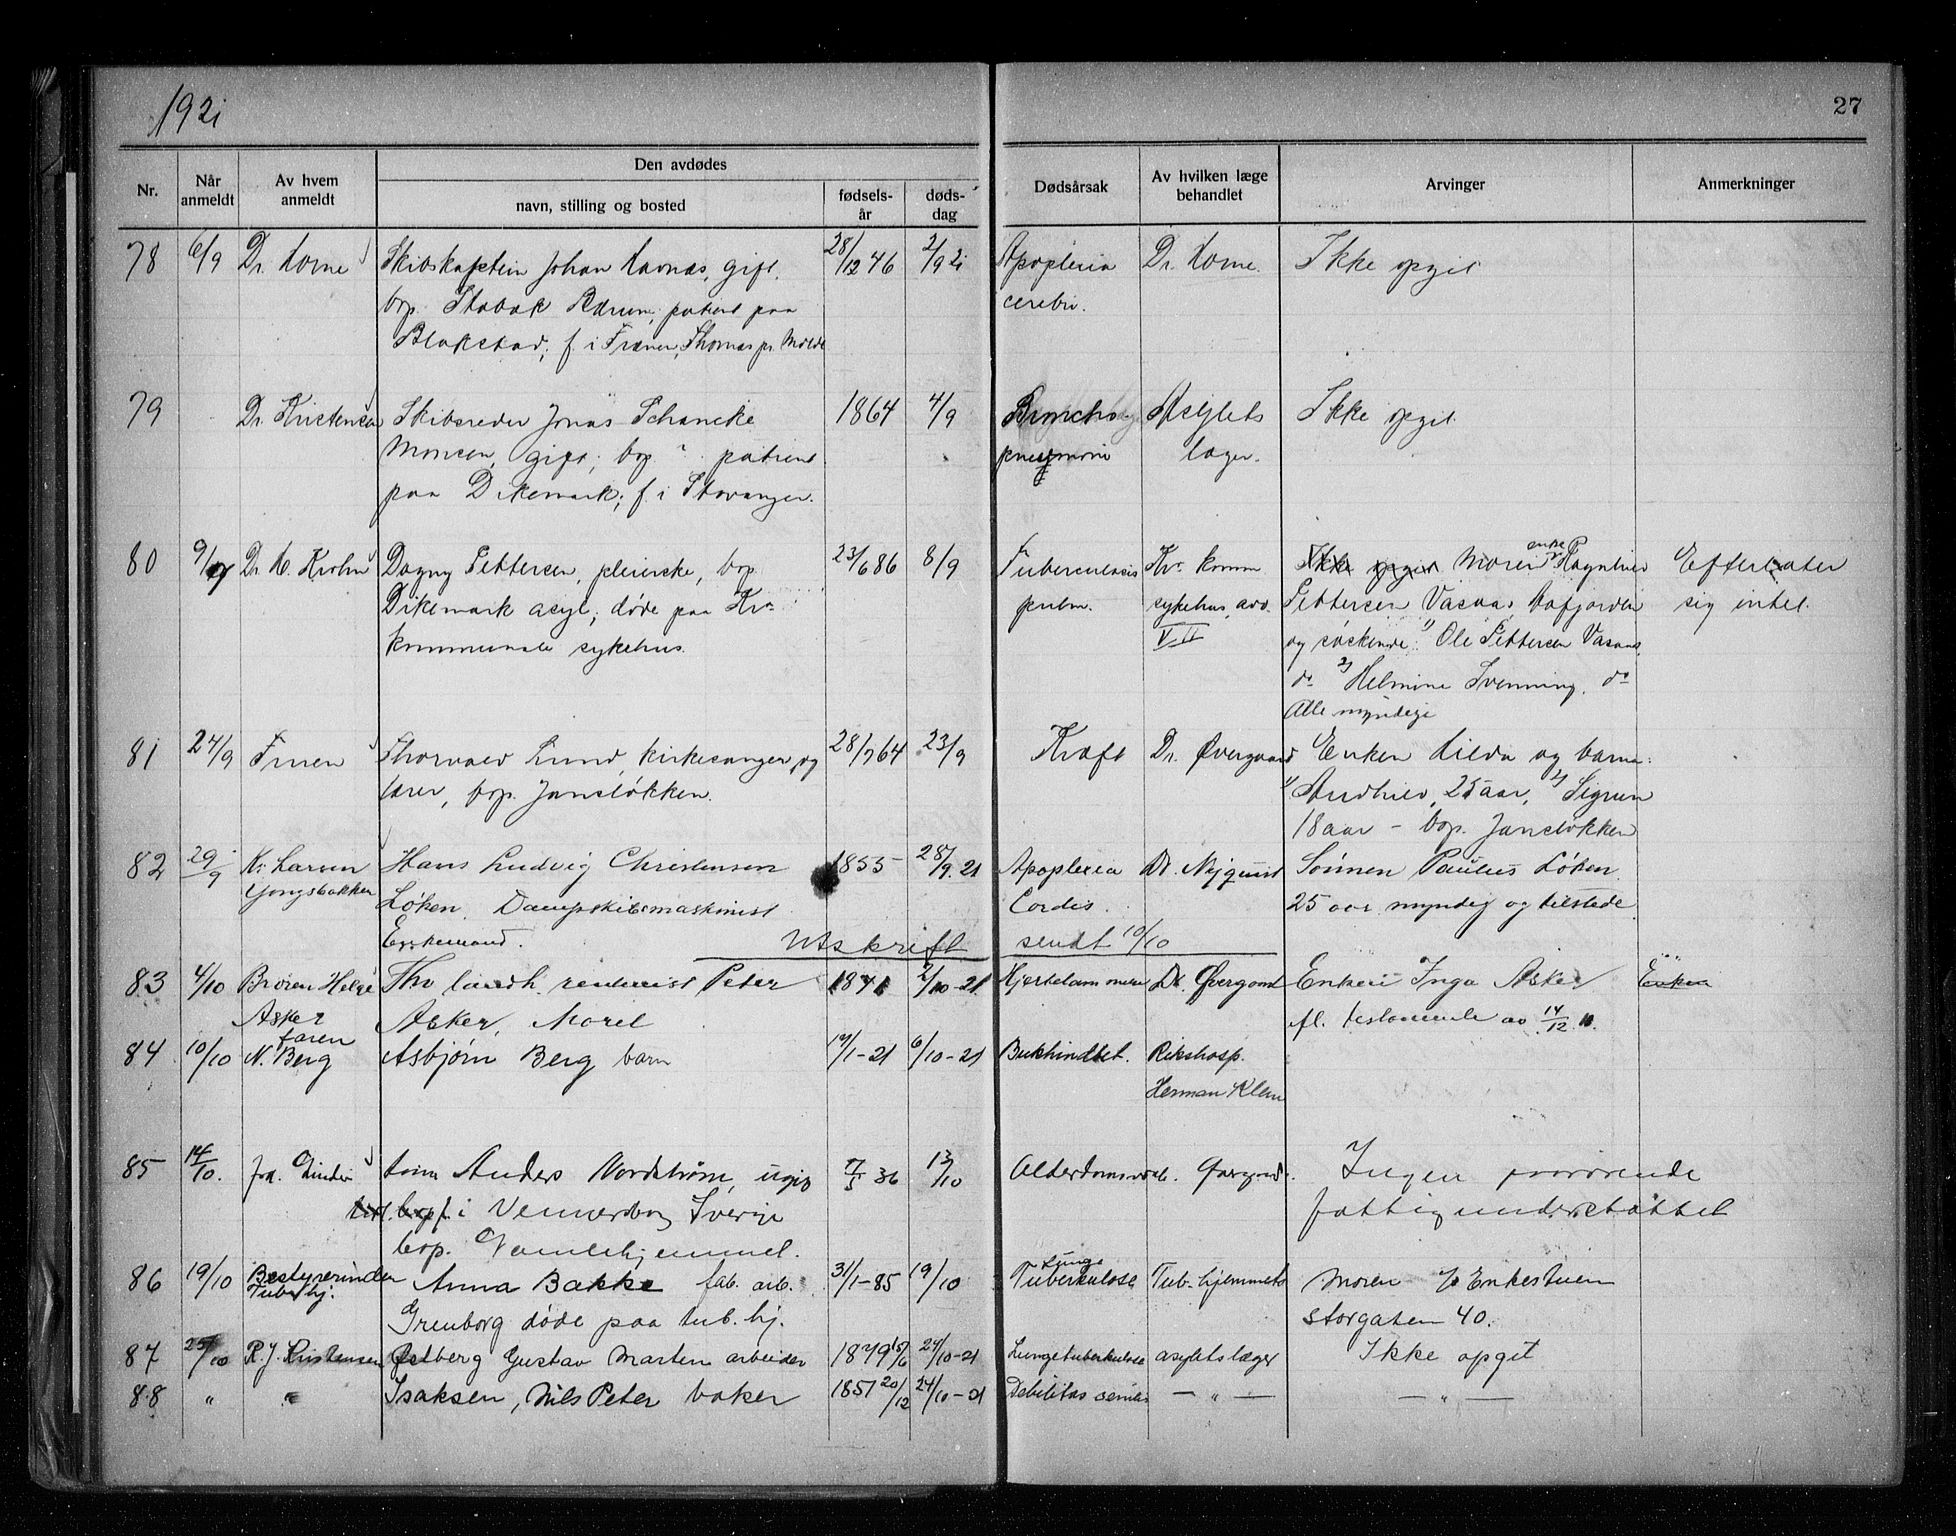 1921
27
Nr.
Når anmeldt
Av hvem anmeldt
Den avdødes
navn, stilling og bosted
fødsels-år
døds-dag
Dødsårsak
Av hvilken læge behandlet
Arvinger
Anmerkninger
78 6/9 Dr. Horne Skibskaptein Johan Havnas, gift, 28/12 46 2/9 21 Apoplexia Dr. Horne. Ikke opgit
bop. Stabæk Bærum; patient paa cerebri.
Blakstad; f. i Fræner, Thornæs pr. Molde
79 Dr. Kristensen Skibsreder Jonas Schancke 1864 4/9 Broncho Asylets Ikke opgit
Monsen, gift; bop ? patient pneumoni læger.
paa Dikemark; f. i Stavanger.
80 9/9 Dr. H. Krohn Dagny Pettersen, pleierske, bop 23/6 86 8/9 Tuberculosis Kr. komm Ikke opgit Moren enke Ragnhild Efterlater
Dikemark asyl; døde paa Kra pulm. sykehus, avd. Pettersen Vasaas sig intet.
kommunale sykehus. VII og søskende: 1) Ole Pettersen Vasaas
do 2) Helmine Svenning, do
Alle myndige
81 24/9 Fruen Thorvald Lund, kirkesanger og 28/7 64 23/9 Kræft Dr. Øvergaard Enken Hilda og barna:
lærer, bop. Jansløkken. 1) Andhild, 25 aar, 2) Sigrun
18 aar – bop. Jansløkken
82 29/9 K. Larsen Hans Ludvig Christensen 1855 28/9. 21 Apoplexia Dr. Nyquist Sønnen Paulus Løken
Yongsbakken Løken, Dampskibsmaskinist Cordis. 25 aar myndig og tilstede
Enkemand.
Utskrift sendt 10/10
83 4/10 Broren Helge Thv. landh. rentenist Peter 1871 2/10-21 Hjertelammelse Dr. Øvergaard Enken Inga Asker Enken
Asker Asker, Morel fl. testamente av 14/12 10.
84 10/10 faren N. Berg Asbjørn Berg barn 14/1-21 6/10-21 Bukhindbet. Rikshosp.
Herman Klem
85 14/10. fra. Linder Anders Nordstrøm, ugip 7/5 36 13/10 Alderdomssv. Ingen paarørende
f. i Vennersborg Sverige fattigunderstøttet
bop. Gamlehjemmet.
86 19/10 Bestyrerinden Anna Bakke fab. arb. 31/1-85 19/10 Lunge Tuberkulose Tub. hjemmets Moren Enkefruen
Tub.hj. Grenborg døde paa tub. hj. Storgaten 40.
87 25/10 R. J. Kristensen Østberg Gustav Marten arbeider 1879 15/6 24/10-21 Lungetuberkulose asylets læger Ikke opgit
88 " " Isaksen, Nils Peter baker 1851 20/12 24/10-21 Debilitas senilis — " — — " —